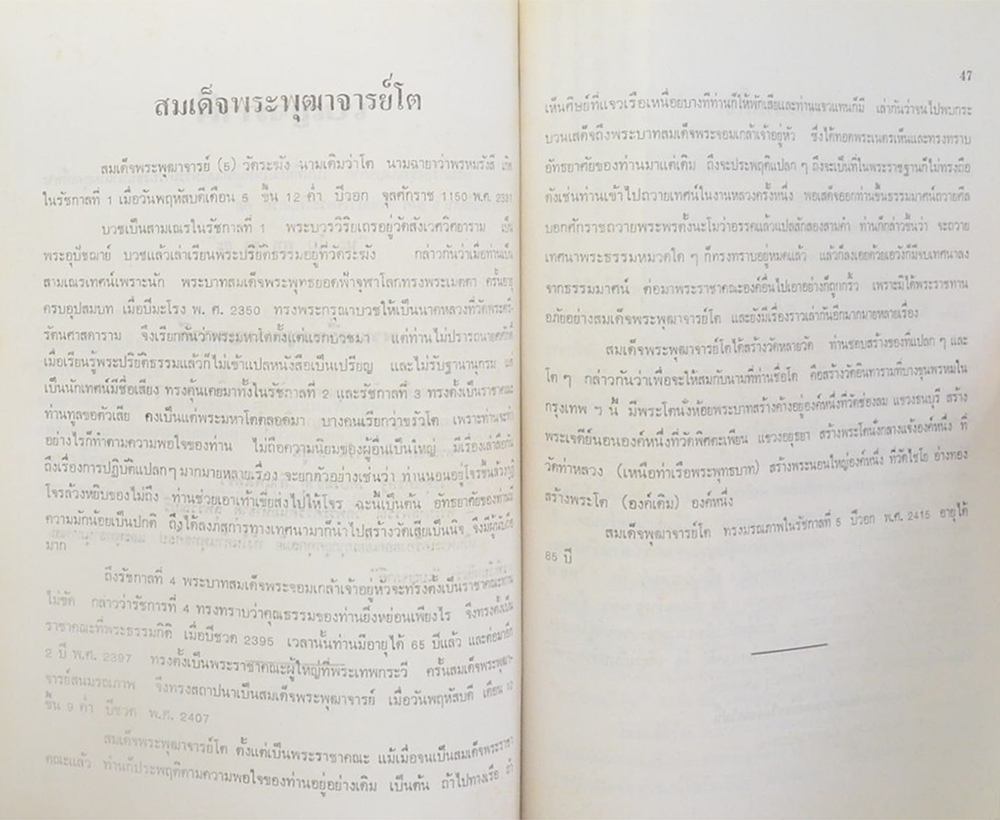 สมเด็จพระพุฒาจารย์โต
สมเด็จพระพุฒาจารย์ (5) วัดระฆัง นามเดิมว่าโต นามฉายาว่าพรหมรังสี
ในรัชกาลที่ 1 เมื่อวันพฤหัสบดีเดือน 5 ขึ้น 12 ค่ำ ปีวอก จุลศักราช 1150 พ.ศ. 2331
บวชเป็นสามเณรในรัชกาลที่ 1 พระบวรวิริยเถรอยู่วัดสังเวศวิศยาราม เป็น
พระอุปัชฌาย์ บวชแล้วเล่าเรียนพระปริยัติธรรมอยู่ที่วัดระฆัง กล่าวกันว่าเมื่อท่านเป็น
สามเณรเทศน์เพราะนัก พระบาทสมเด็จพระพุทธยอดฟ้าจุฬาโลกทรงพระเมตตา ครั้นอายุ
ครบอุปสมบท เมื่อปีมะโรง พ. ศ. 2350 ทรงพระกรุณาบวชให้เป็นนาคหลวงที่วัดพระศรี-
รัตนศาสดาราม จึงเรียกกันว่าพระมหาโตตั้งแต่แรกบวชมา แต่ท่านไม่ปรารถนายศศักดิ์
เมื่อเรียนรู้พระปริยัติธรรมแล้วก็ไม่เข้าแปลหนังสือเป็นเปรียญ และไม่รับฐานานุกรม แต่
เป็นนักเทศน์มีชื่อเสียง ทรงคุ้นเคยมาทั้งในรัชกาลที่ 2 และรัชกาลที่ 3 ทรงตั้งเป็นราชาคณะ
ท่านทูลขอตัวเสีย คงเป็นแต่พระมหาโตตลอดมา บางคนเรียกว่าขรัวโต เพราะท่านจะทำ
อย่างไรก็ทำตามความพอใจของท่าน ไม่ถือความนิยมของผู้อื่นเป็นใหญ่ มีเรื่องเล่าลือกัน
ถึงเรื่องการปฏิบัติแปลกๆ มากมายหลายเรื่อง จะยกตัวอย่างเช่นว่า ท่านนอนอยู่โจรขึ้นล้วงกุฏิ
โจรล้วงหยิบของไม่ถึง ท่านช่วยเอาเท้าเขี่ยส่งไปให้โจร ฉะนี้เป็นต้น อัทธยาศัยของท่านมี
ความมักน้อยเป็นปกติ ถึงได้ลงภสุการทางเทศนามาก็นำไปสร้างวัดเสียเป็นนิจ จึงมีผู้นับถือ
มาก
ถึงรัชกาลที่ 4 พระบาทสมเด็จพระจอมเกล้าเจ้าอยู่หัวจะทรงตั้งเป็นราชาคณะท่าน
ไม่ขัด กล่าวว่ารัชการที่ 4 ทรงทราบว่าคุณธรรมของท่านยิ่งหย่อนเพียงไร จึงทรงตั้งเป็น
ราชาคณะที่พระธรรมกิติ เมื่อปีชวด 2395 เวลานั้นท่านมีอายุได้ 65 ปีแล้ว และต่อมาอีก
2 ปี พ.ศ. 2397 ทรงตั้งเป็นพระราชาคณะผู้ใหญ่ที่พระเทพกระวี ครั้นสมเด็จพระพุฒา-
จารย์สนมรณภาพ จึงทรงสถาปนาเป็นสมเด็จพระพุฒาจารย์ เมื่อวันพฤหัสบดี เดือน 10
ขึ้น 9 ค่ำ ปีชวด พ.ศ. 2407
สมเด็จพระพุฒาจารย์โต ตั้งแต่เป็นพระราชาคณะ แม้เมื่อจนเป็นสมเด็จพระราชา
คณะแล้ว ท่านก็ประพฤติตามความพอใจของท่านอยู่อย่างเดิม เป็นต้น ถ้าไปทางเรือ ถ้า
47
เห็นศิษย์ที่แจวเรือเหนื่อยบางทีท่านก็ให้พักเสียและท่านแจวแทนก็มี เล่ากันว่าจนไปพบกระ
บวนเสด็จถึงพระบาทสมเด็จพระจอมเกล้าเจ้าอยู่หัว ซึ่งได้ทอดพระเนตรเห็นและทรงทราบ
อัทธยาศัยของท่านมาแต่เดิม ถึงจะประพฤติแปลก ๆ ถึงจะเป็นที่ในพระราชฐานก็ไม่ทรงถือ
ดังเช่นท่านเข้าไปถวายเทศน์ในงานหลวงครั้งหนึ่ง พอเสด็จออกท่านขึ้นธรรมาศน์ถวายศีล
บอกศักราชถวายพระพรตั้งนะโมว่าอรรคแล้วแปลสักสองสามคำ ท่านก็กล่าวขึ้นว่า จะถวาย
เทศนาพระธรรมหมวดใด ๆ ก็ทรงทราบอยู่หมดแล้ว แล้วก็ลงเอยด้วยเอวังก็มีจบเทศนาลง
จากธรรมมาศน์ ต่อมาพระราชาคณะองค์อื่นไปเอาอย่างก็ถูกกริ้ว เพราะมิได้พระราชทาน
อภัยอย่างสมเด็จพระพุฒาจารย์โต และยังมีเรื่องราวเล่ากันอีกมากมายหลายเรื่อง
สมเด็จพระพุฒาจารย์โตได้สร้างวัดหลายวัด ท่านชอบสร้างของที่แปลก ๆ และ
โต ๆ กล่าวกันว่าเพื่อจะให้สมกับนามที่ท่านชื่อโต คือสร้างวัดอินทารามที่บางขุนพรหมใน
กรุงเทพ ฯ นี้ มีพระโตนั่งห้อยพระบาทสร้างค้างอยู่องค์หนึ่งที่วัดช่องลม แขวงธนบุรี สร้าง
พระเจดีย์นอนองค์หนึ่งที่วัดพิตตะเพียน แขวงอยุธยา สร้างพระโตนั่งกลางแจ้งองค์หนึ่ง ที่
วัดท่าหลวง (เหนือท่าเรือพระพุทธบาท) สร้างพระนอนใหญ่องค์หนึ่ง ที่วัดไชโย อ่างทอง
สร้างพระโต (องค์เดิม) องค์หนึ่ง
สมเด็จพุฒาจารย์โต ทรงมรณภาพในรัชกาลที่ 5 ปีวอก พ.ศ. 2415 อายุได้
85 ปี